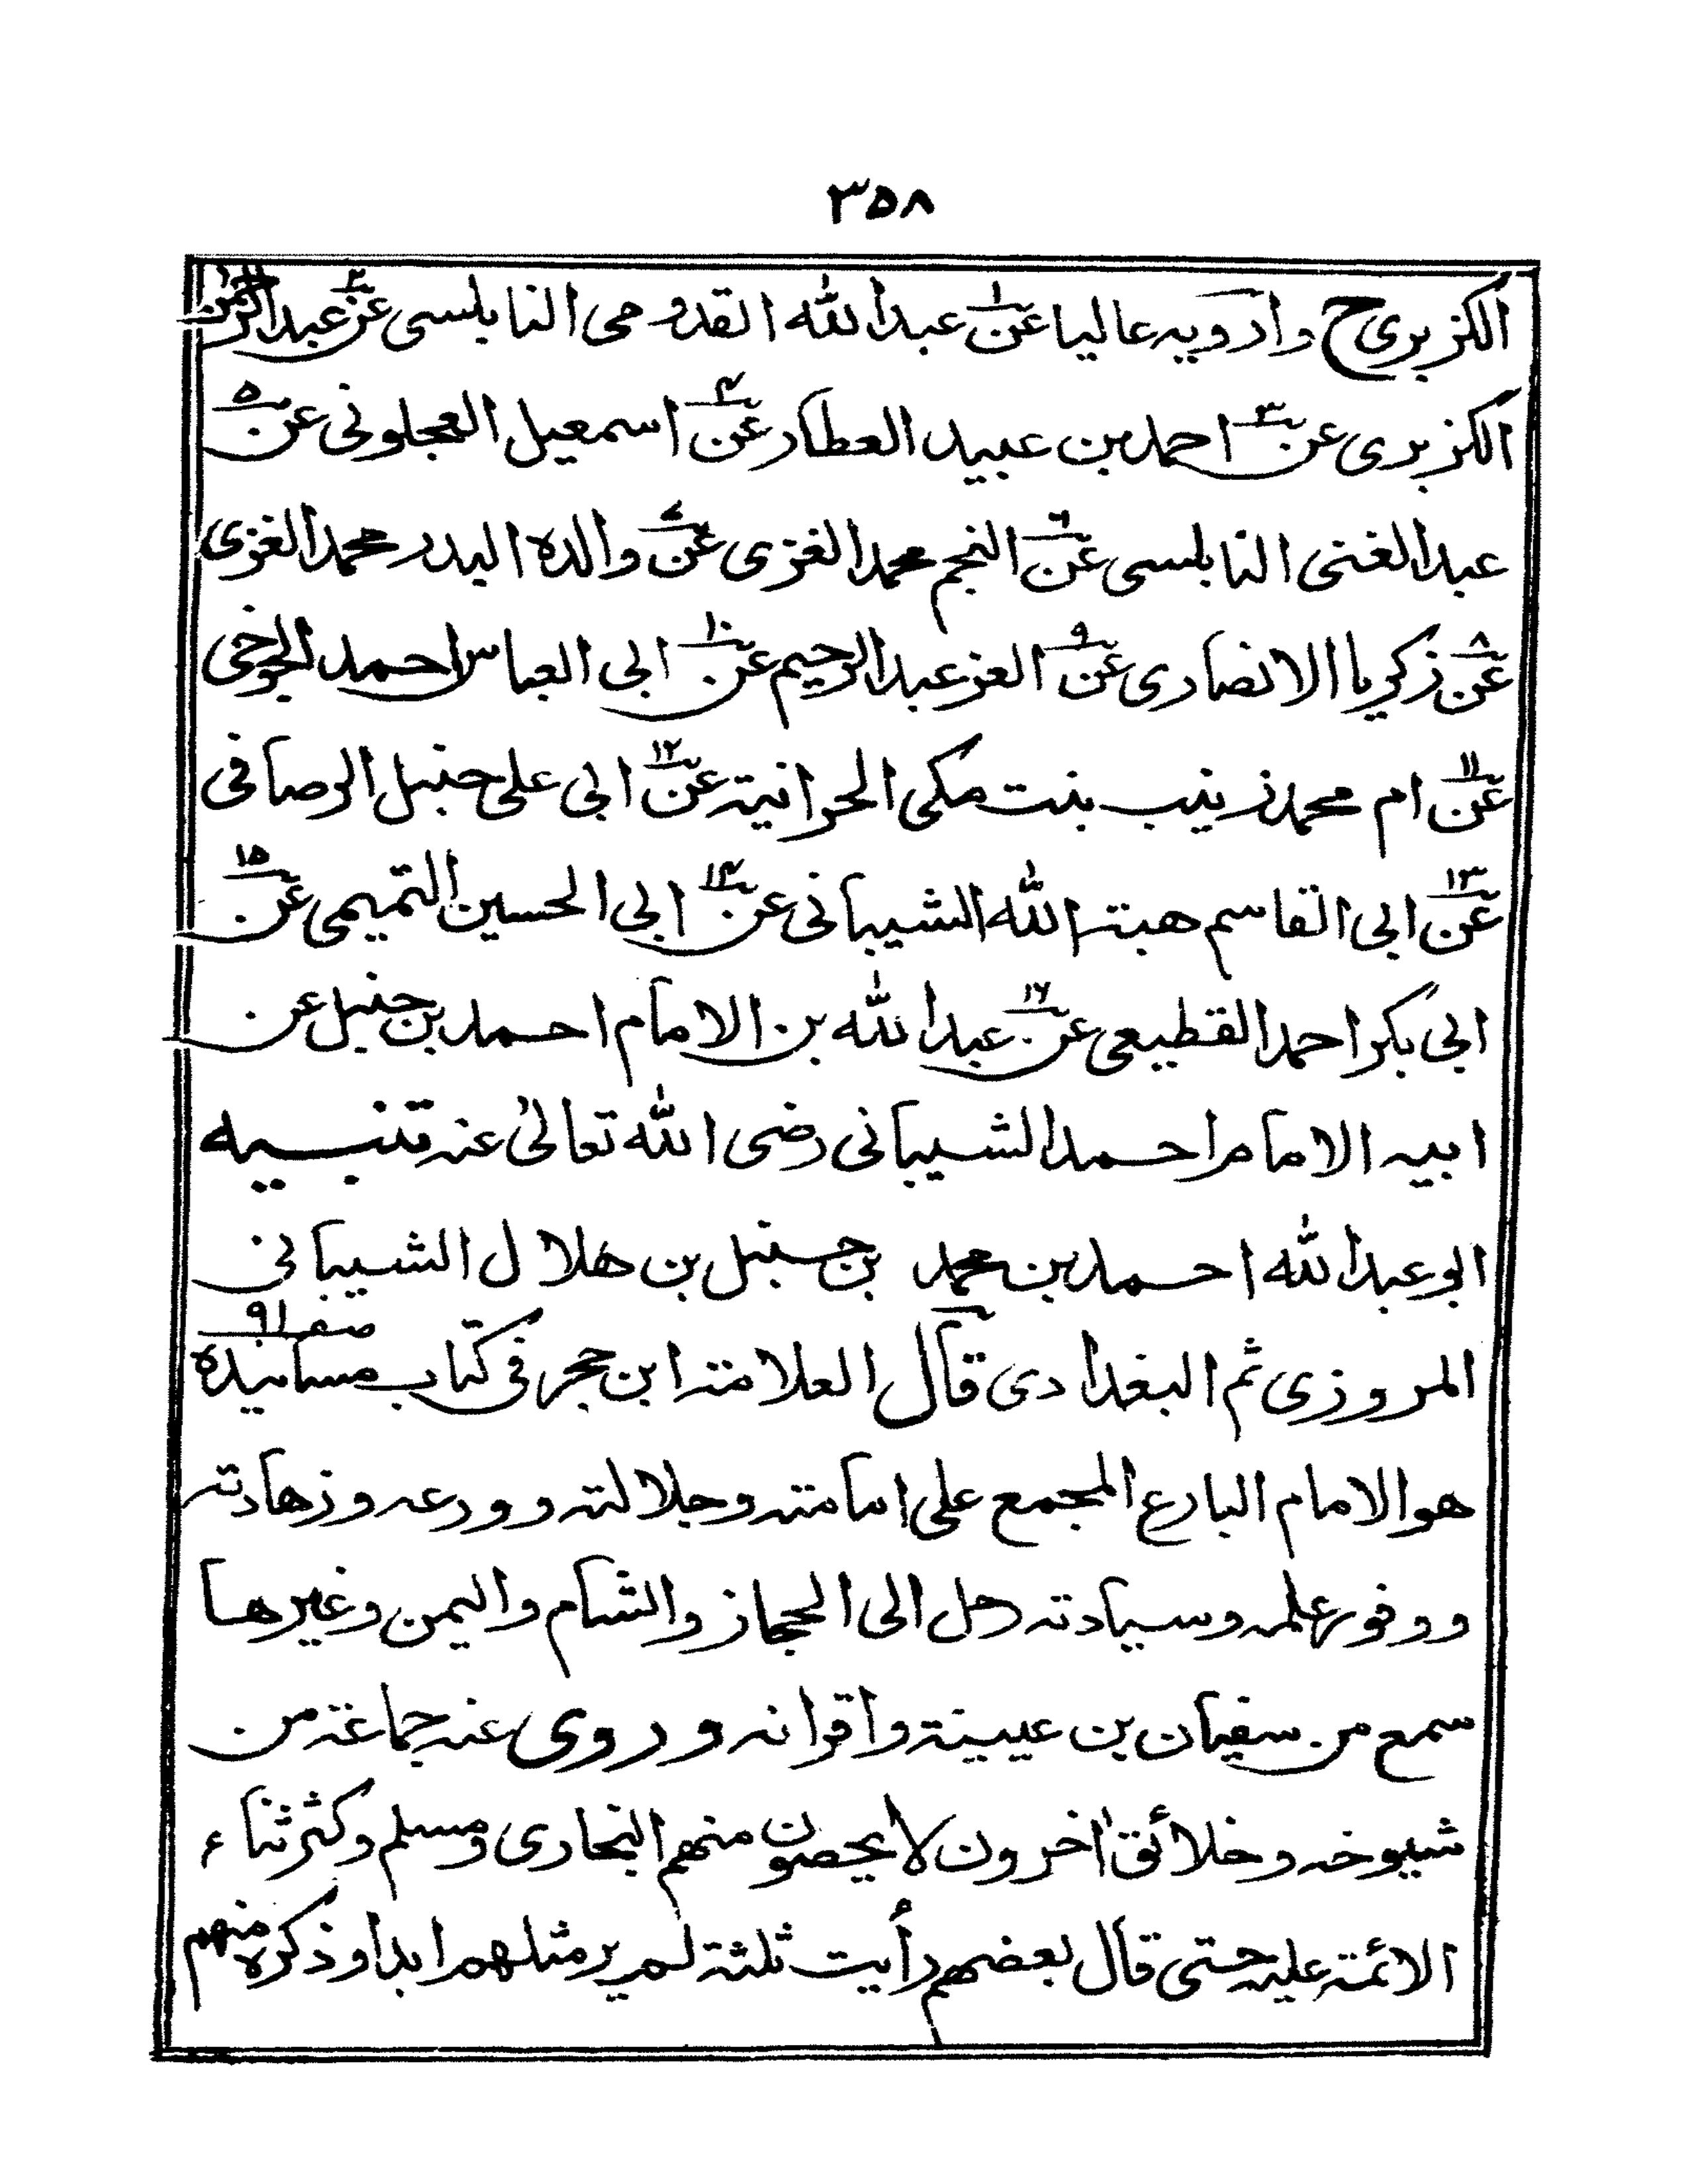 ٣٥٨
الكزبرى ح وأرويه عاليا عن١ عبدالله القدومى النابلسى عن٢ عبدالرحمن
الكزبرى عن٣ احمد بن عبيد العطار عن٤ اسمعيل العجلونى عن٥
عبدالغنى النابلسى عن٦ النجم محمد الغزى عن٧ والده البدر محمد الغزى
عن٨ زكريا الانصارى عن٩ العز عبدالرحيم عن١٠ ابى العباس احمد الجوخى
عن١١ ام محمد زينب بنت مكى الحرانية عن١٢ ابى على حنبل الرصافى
عن١٣ ابى القاسم هبة الله الشيبانى عن١٤ ابى الحسين التميمى عن١٥
ابى بكر احمد القطيعى عن١٦ عبدالله بن الامام احمد بن حنبل عن
ابيه الامام احمد الشيبانى رضى الله تعالىٰ عنه تنبيه
ابو عبدالله احمد بن محمد بن حنبل بن هلال الشيبانى
المروزى ثم البغدادى قال العلامة ابن حجر فى كتاب مسانيده صفر ٩١
هو الامام البارع المجمع على امامته وجلالته وورعه وزهادته
ووفور علمه وسيادته رحل الى الحجاز والشام واليمن وغيرها
سمع من سفيان بن عيينة واقرانه وروى عنه جماعة من
شيوخه وخلائق اٰخرون لا يحصون منهم البخارى ومسلم وكثر ثناء
الائمة عليه حتى قال بعضهم رأيت ثلثة لم ير مثلهم ابدا وذكره منهم